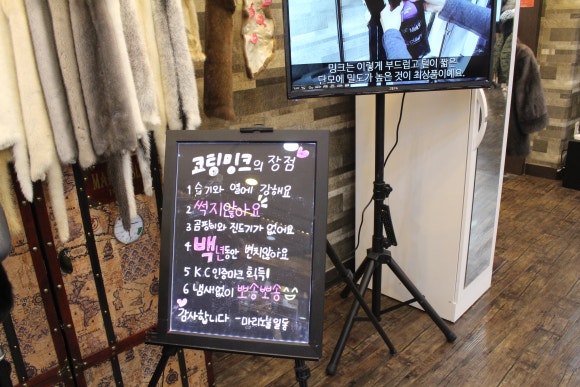 밍크는 이렇게 부드럽고 털이 짧은
단모에 밀도가 높은 것이 최상품이예요.
코팅밍크의 장점
1 습기와 열에 강해요
2 썩지않아요
3 곰팡이와 진드기가 없어요
4 백년동안 변치않아요
5 K.C 인증마크 획득!
6 냄새없이 뽀송뽀송
감사합니다 -마리노블 일동